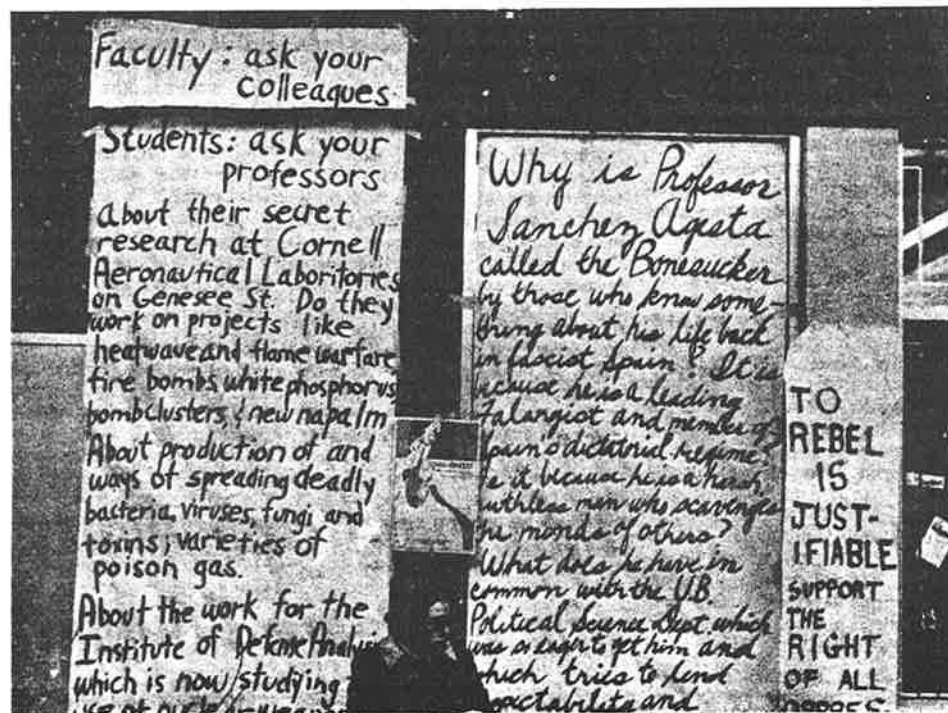 Faculty: ask your
colleagues
Students: ask your
professors
about their secret
research at Cornell
Aeronautical Laboritories
on Genesee St. Do they
work on projects like
heatwave and flame warfare
fire bombs, white phosphorus
bomb clusters, & new napalm
About production of and
ways of spreading deadly
bacteria, viruses, fungi and
toxins; varieties of
poison gas.
About the work for the
Institute of Defense
which is now studying
use of
Why is Professor
Sanchez Agesta
called the Bonesucker
by those who know some-
thing about his life back
in fascist Spain? It is
because he is a leading
Falangist and member of
Spain's dictatorial regime?
Is it because he is a harsh,
ruthless man who scavenges
the minds of others?
What does he have in
common with the U.B.
Political Science Dept. which
was so eager to get him and
which tries to lend
and
TO
REBEL
IS
JUST-
IFIABLE
SUPPORT
THE
RIGHT
OF ALL